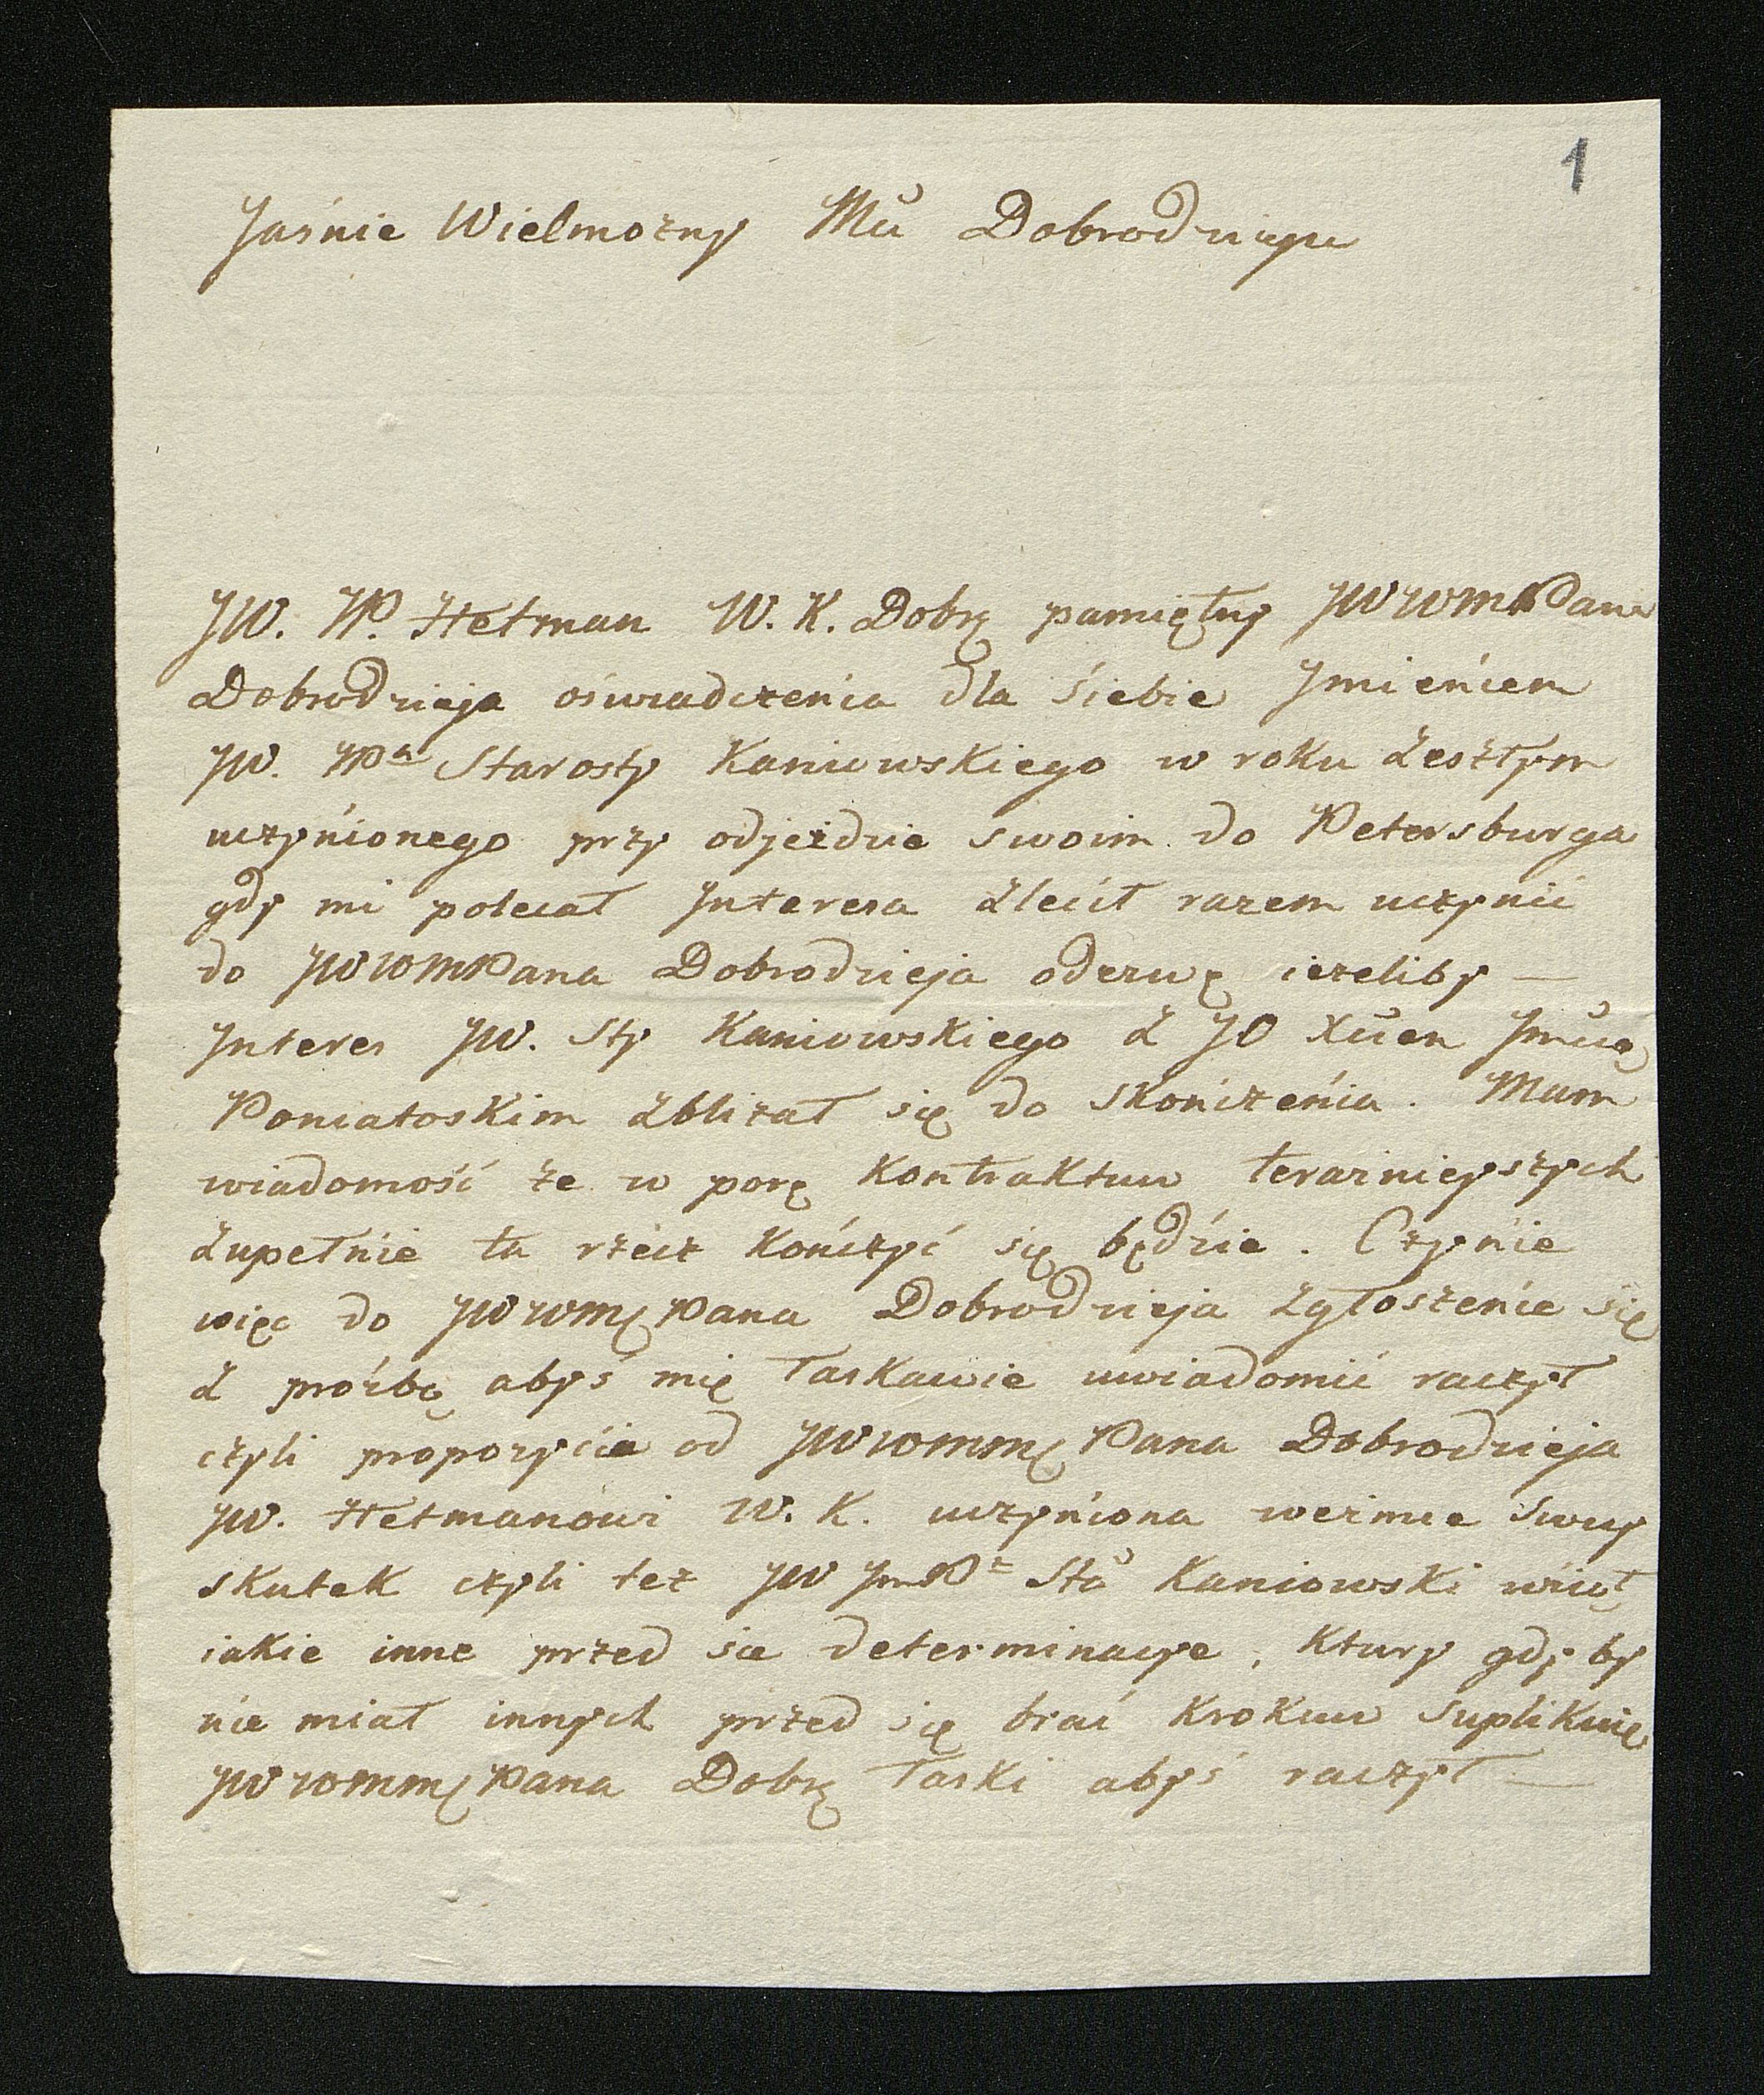 1
Jaśnie Wielmożny Mci Dobrodzieju
JW. JP. Hetman W. K. Dobrz pamiętny JWWmPana
Dobrodzieja oświadczenia dla śiebie Jmieńiem
JW. JPa Starosty Kaniowskiego w roku zeszłym
uczynionego przy odjeździe swoim do Petersburga
gdy mi polecał Jnteresa zlećił razem uczynić
do JWWmPana Dobrodzieja odezwę ieżeliby —
Jnteres JW. Sty Kaniowskiego z JO Xciem Jmcią
Poniatoskim zbliżał się do skończeńia. Mam
wiadomość że w porę Kontraktuw teraźnieyszych
zupełnie ta rzecz kończyć się będźie. Czynie
więc do JWWmPana Dobrodzieja zgłoszeńie się
z proźbą abyś mię łaskawie uwiadomić raczył
czyli propozycia od JWWmmPana Dobrodzieja
JW. Hetmanowi W. K. uczyńiona weźmie swuy
skutek czyli też JW JmPn Sta Kaniowski wziął
iakie inne przed sie determinacye, ktury gdy by
nie miał innych przed się brać krokuw suplikuię
JWWmmPana Dobrz łaski abyś raczył —